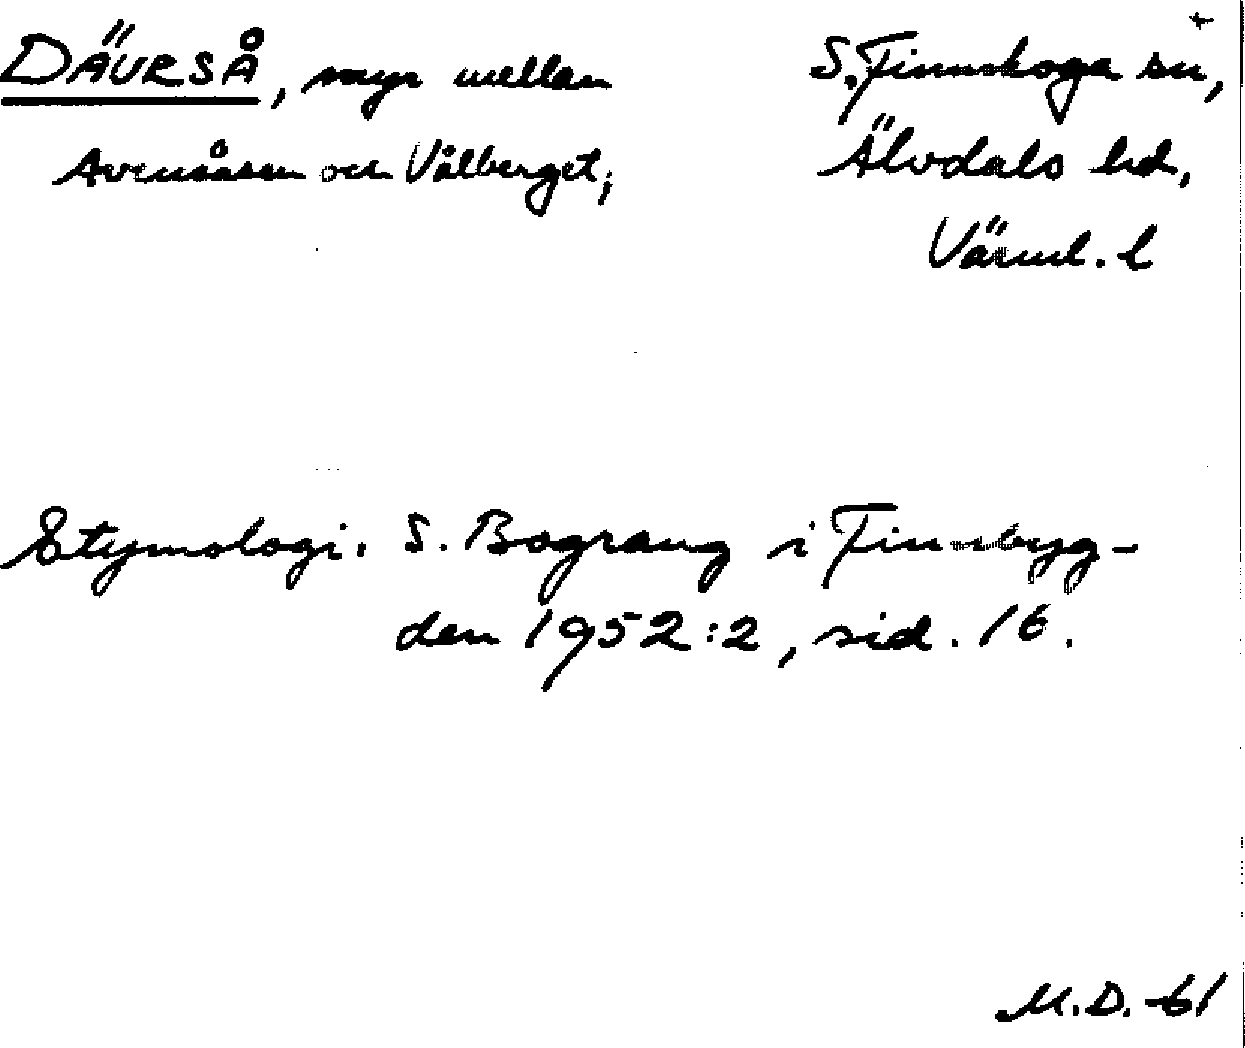 DÄURSÅ, myr mellan
Avensåsen och Vålberget;
S. Finnskoga sn,
Älvdals hd,
Värml. l
Etymologi. S. Bograng i Finnbyg-
den 1952:2, sid. 16.
M.D. -61